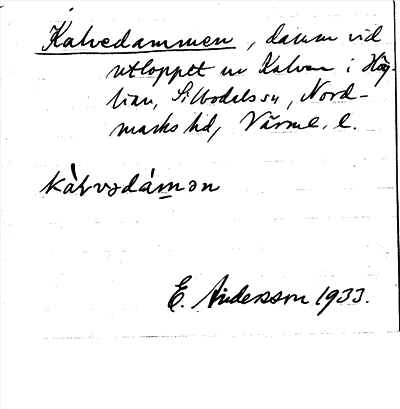 Kalvedammen, damm vid
utloppet ur Kalven i Hög-
lian, Silbodals sn, Nord-
marks hd, Värml. l.
kàlvədámən
E. Andersson 1933.